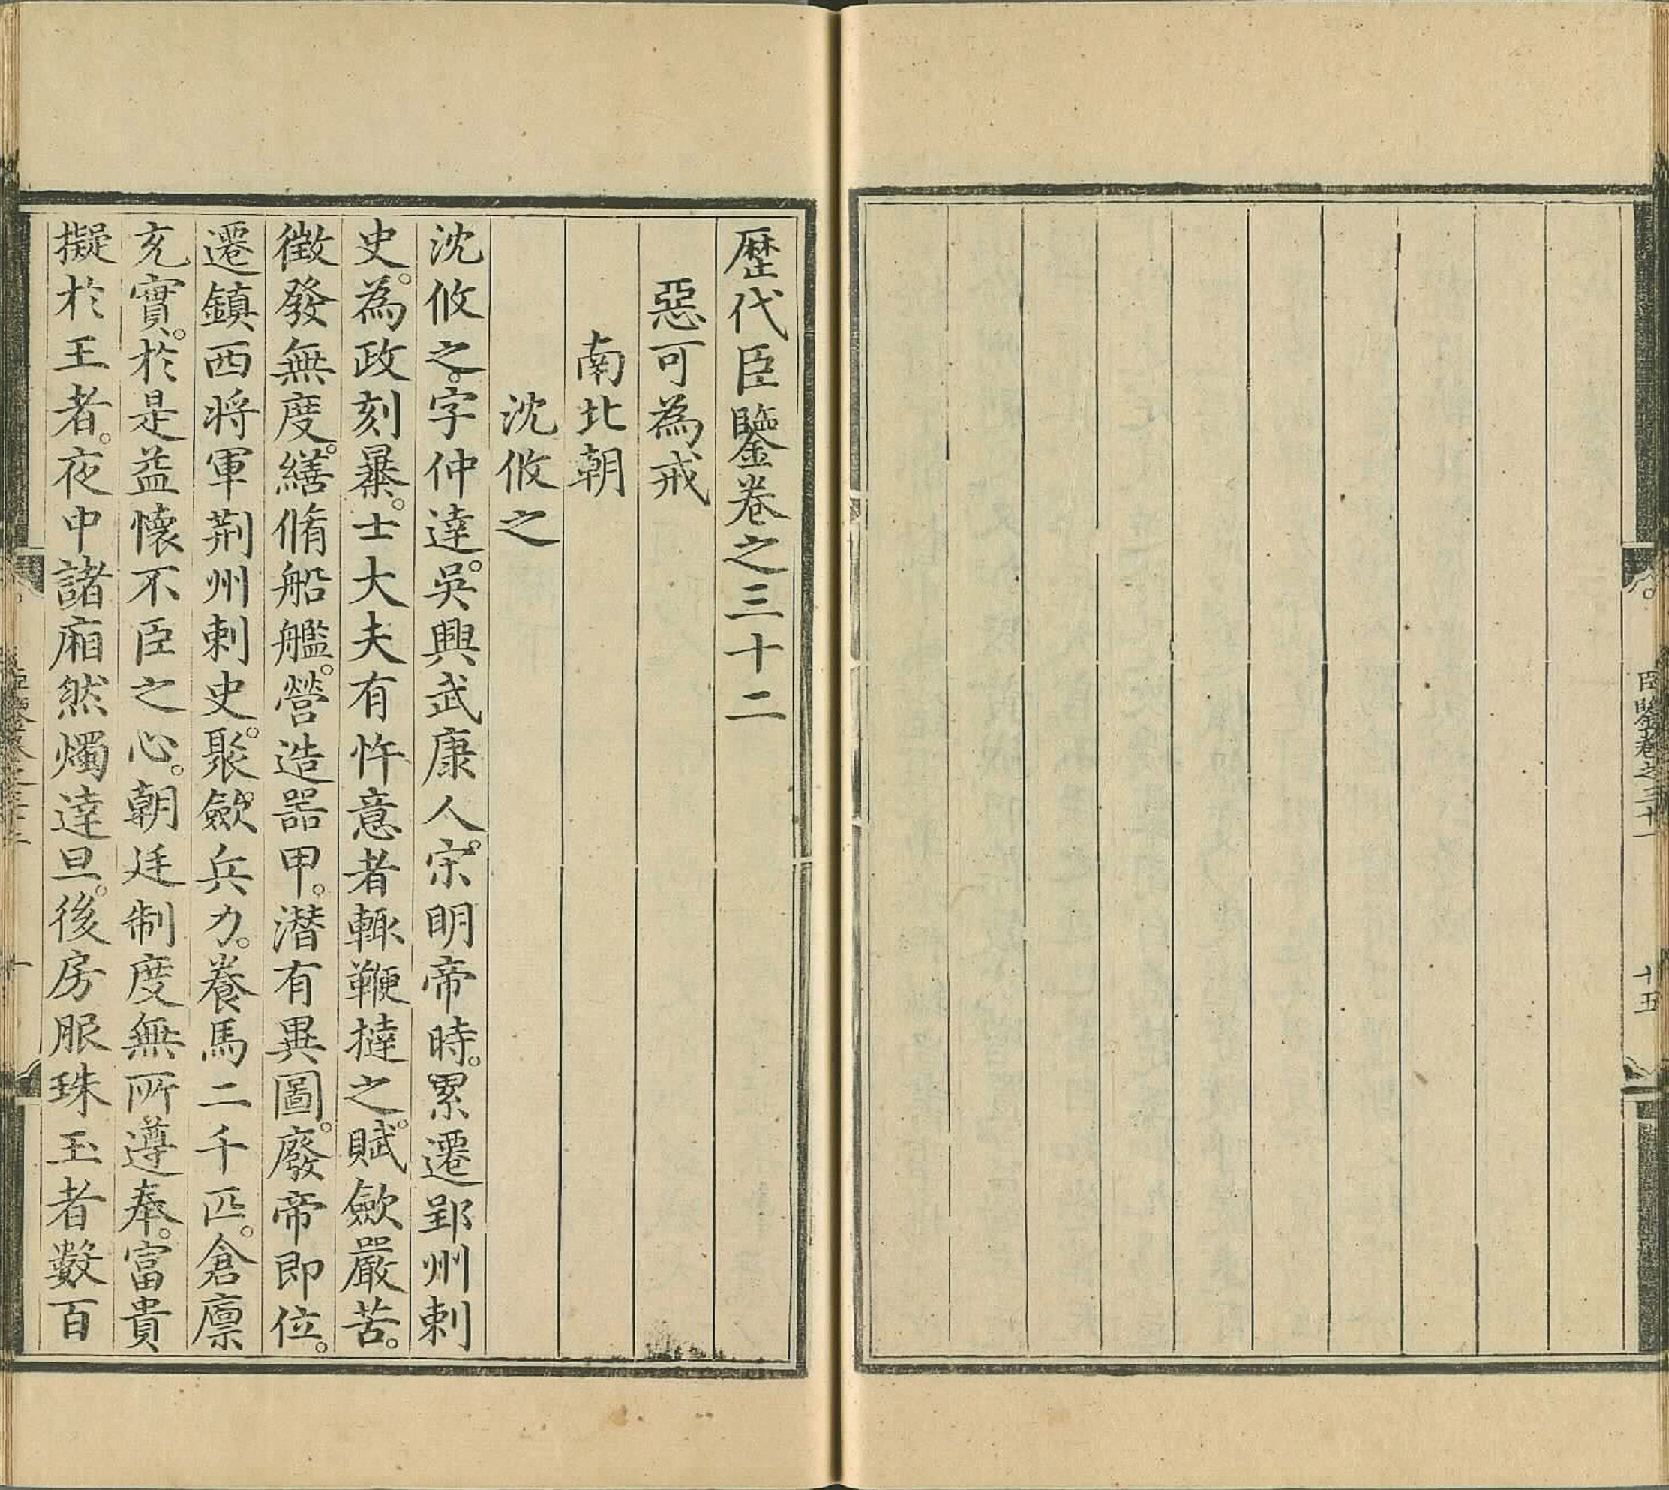 臣鑒卷之三十一
十五
歴代臣鑒卷之三十二
惡可為戒
南北朝
沈攸之
沈攸之。字仲達。吳興武康人。宋明帝時。累遷郢州刺
史。為政刻暴。士大夫有忤意者輙鞭撻之。賦斂嚴苦。
徵發無度。繕脩船艦。營造器甲。潜有異圖。廢帝即位。
遷鎮西將軍荊州刺史。聚斂兵力。養馬二千匹。倉廪
充實。於是益懷不臣之心。朝廷制度無所遵奉。富貴
擬於王者。夜中諸廂然燭達旦。後房服珠玉者數百